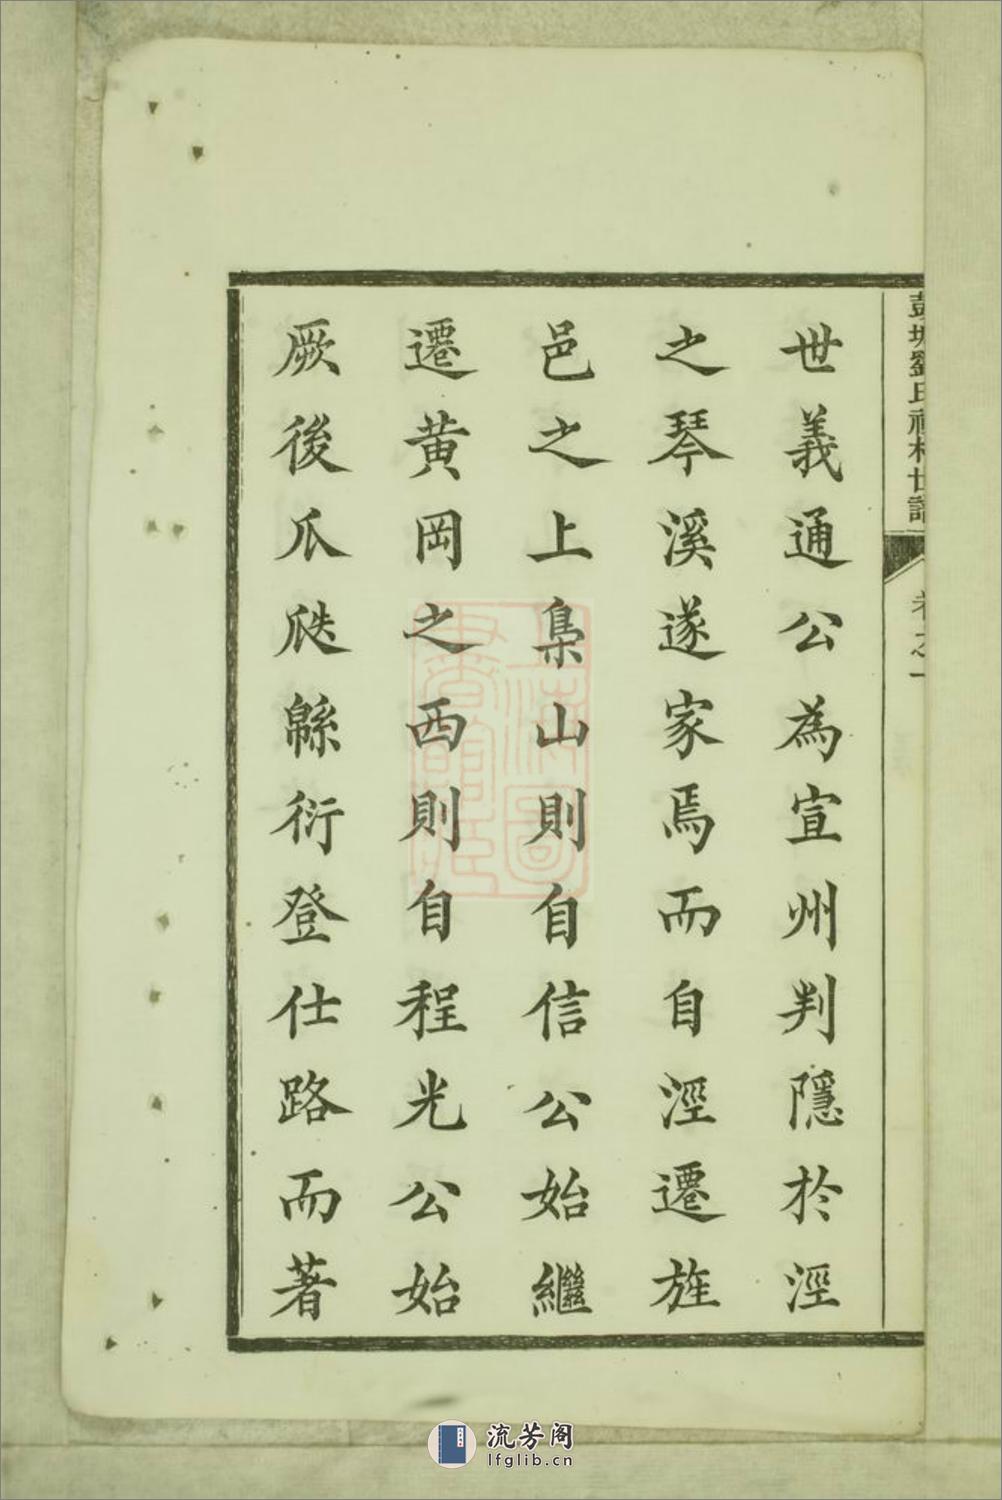 世義通公為宣州判隱於涇
之琴溪遂家焉而自涇遷旌
邑之上梟山則自信公始繼
遷黄岡之西則自程光公始
厥後瓜瓞緜衍登仕路而著
彭城劉氏禮村世譜
卷之一
上海圖書館藏
流芳阁
lfglib.cn